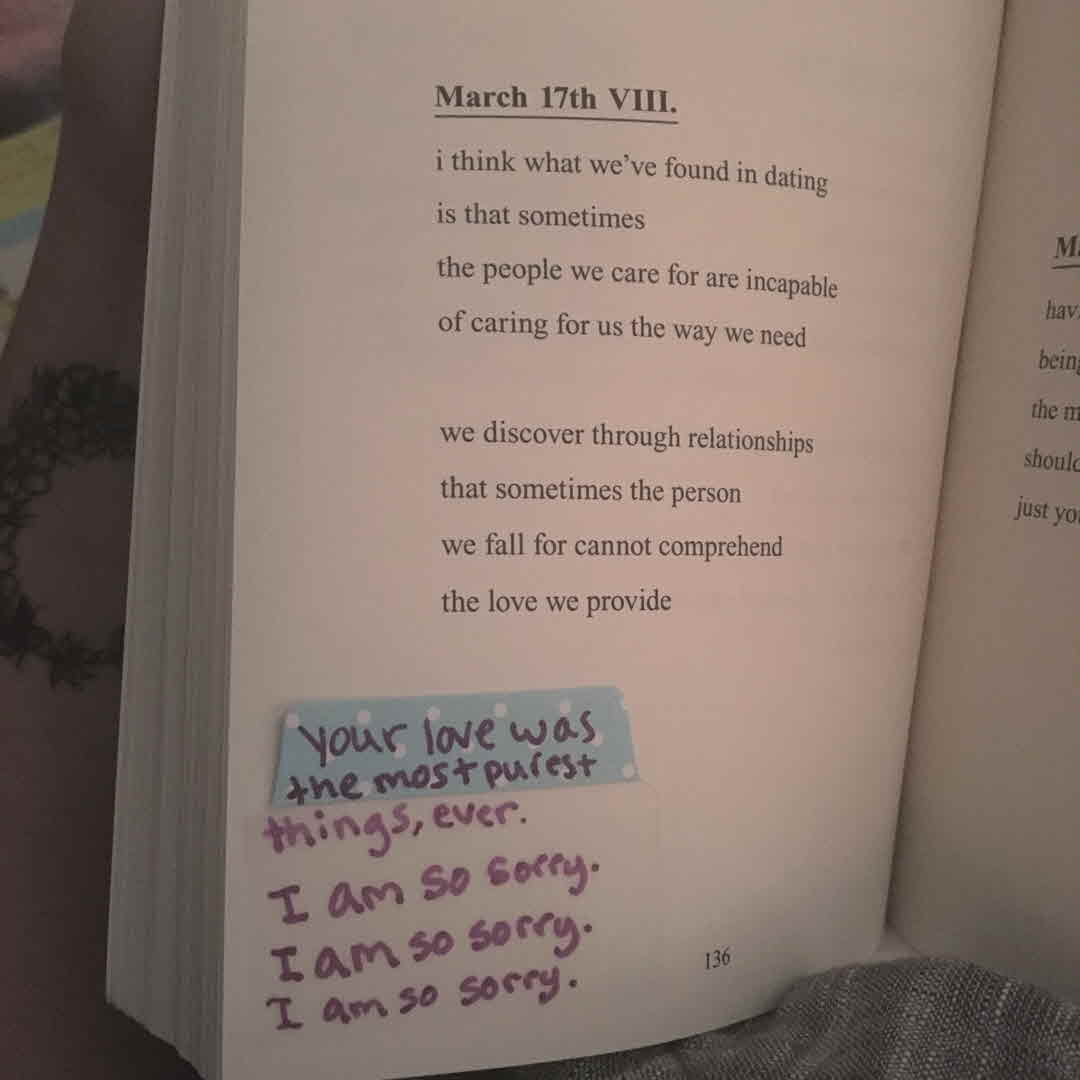 March 17th VIII.
i think what we've found in dating
is that sometimes
the people we care for are incapable
of caring for us the way we need
we discover through relationships
that sometimes the person
we fall for cannot comprehend
the love we provide
your love was
the most purest
things, ever.
I am so sorry.
I am so sorry.
I am so sorry.
136
the
just